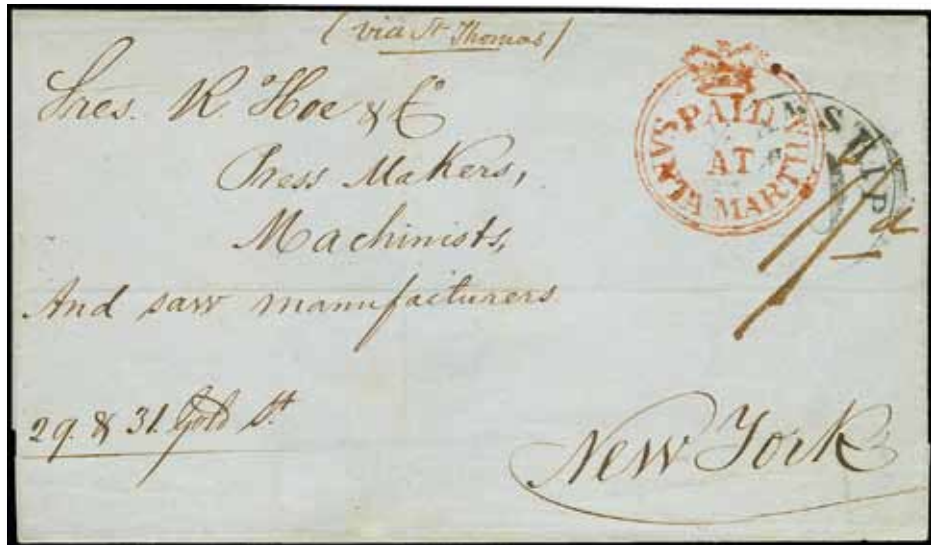 (via St Thomas)
Sres. R. Hoe & Co
Press Makers,
Machinists,
And saw manufacturers
29. & 31. Gold St.
New York
PAID
AT
SANTA MARTHA
SHIP
1/- d